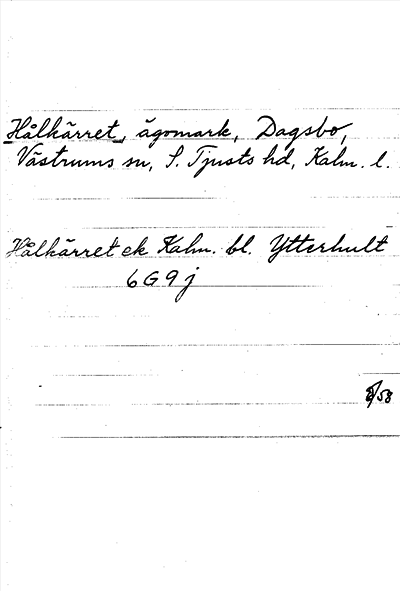 Hålkärret, ägomark, Dagsbo,
Västrums sn, S. Tjusts hd, Kalm. l.
Hålkärret ek Kalm. bl. Ytterhult
6G9j
/58